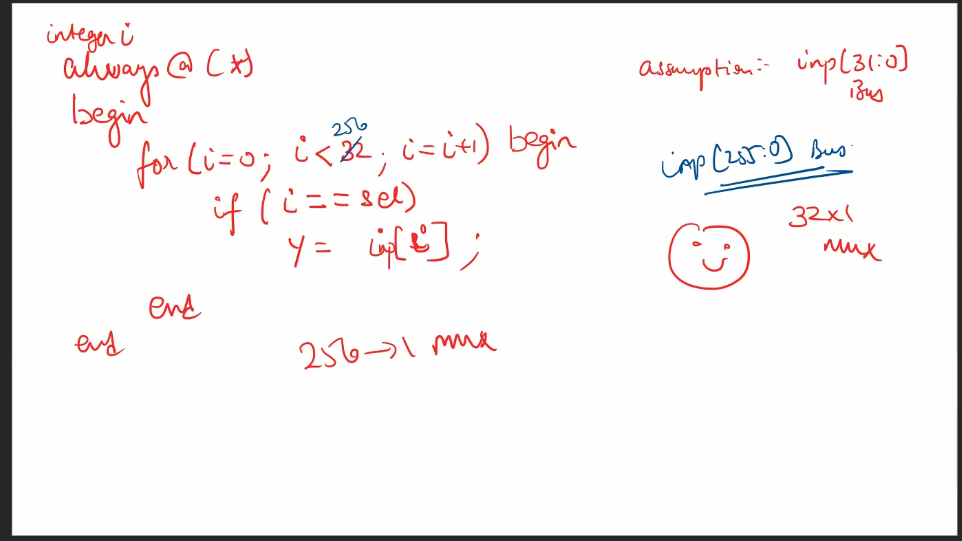 integer i
always @ (*)
begin
for (i=0; i < 32; i = i+1) begin
256
if ( i == sel)
y = inp[i] ;
end
end
256 → 1 mux
assumption:- inp[31:0]
Bus
inp[255:0] Bus
32x1
mux